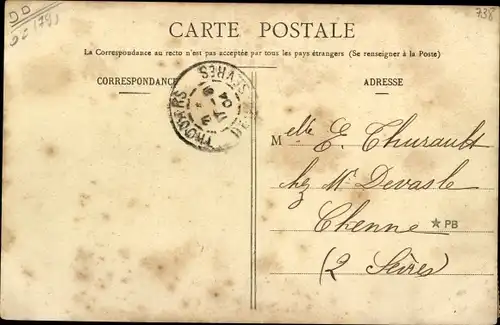 738
CARTE POSTALE
La Correspondance au recto n'est pas acceptée par tous les pays étrangers (Se renseigner à la Poste)
CORRESPONDANCE
ADRESSE
THOUARS
DEUX SÈVRES
04
Melle E. Thurault
chez Mr Devasle
Chenne
PB
(2 Sèvres)